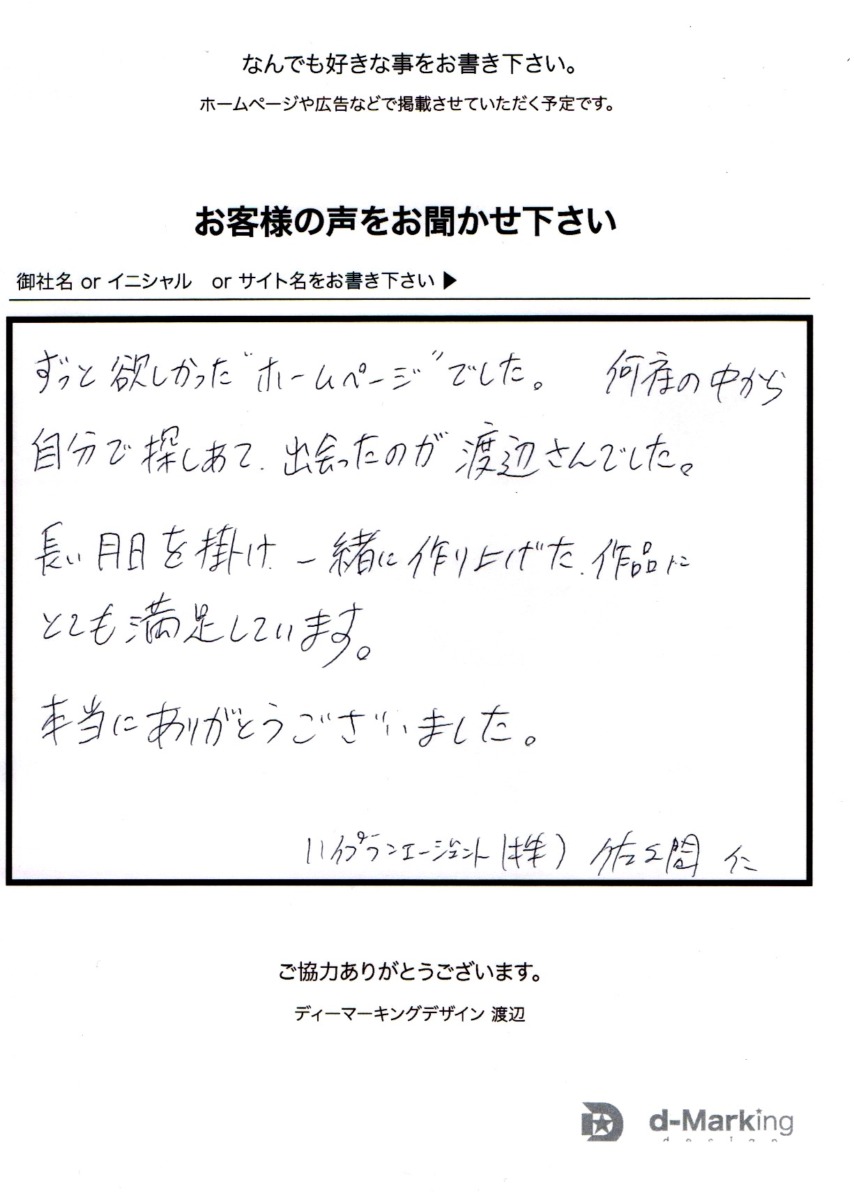 なんでも好きな事をお書き下さい。
ホームページや広告などで掲載させていただく予定です。
お客様の声をお聞かせ下さい
御社名 or イニシャル or サイト名をお書き下さい ▶
ずっと欲しかった“ホームページ”でした。 何、の中から
自分で探しあて、出会ったのが渡辺さんでした。
長い月日を掛け、一緒に作り上げた、作品に
とても満足しています。
本当にありがとうございました。
ハイプランエージェント(株) 佐久間 仁
ご協力ありがとうございます。
ディーマーキングデザイン 渡辺
d-Marking
design